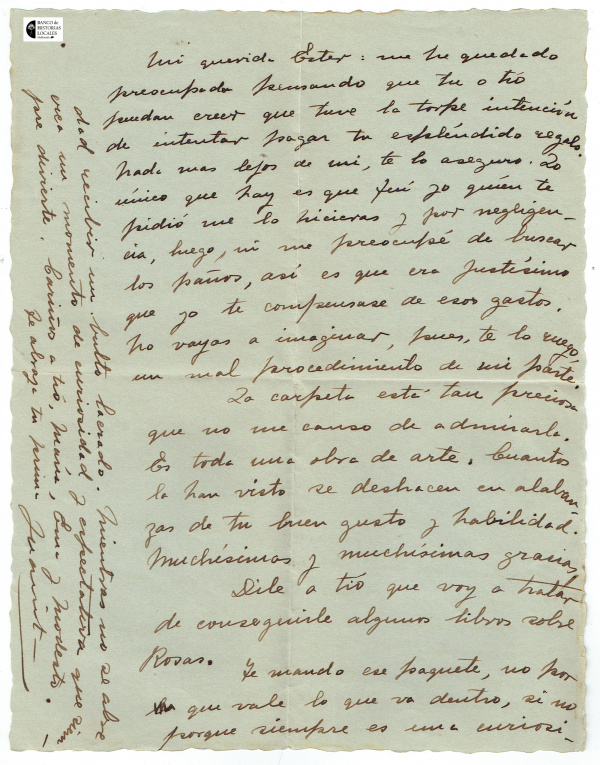 BANCO de
HISTORIAS
LOCALES
Mi querida Ester: me he quedado
preocupada pensando que tu o tió
puedan creer que tuve la torpe intención
de intentar pagar tu espléndido regalo.
Nada mas lejos de mi, te lo aseguro. Lo
único que hay es que fuí yo quién te
pidió me la hicieras y por negligen-
cia, luego, ni me preocupé de buscar
los paños, así es que era justísimo
que yo te compensase de esos gastos.
No vayas a imaginar, pues, te lo ruego,
un mal procedimiento de mi parte.
La carpeta está tan preciosa
que no me canso de admirarla.
Es toda una obra de arte. Cuantos
la han visto se deshacen en alaban-
zas de tu buen gusto y habilidad.
Muchísimas y muchísimas gracias
Dile a tió que voy a tratar
de conseguirle algunos libros sobre
Rosas. Te mando ese paquete, no por
que vale lo que va dentro, si no
porque siempre es una curiosi-
dad recibir un bulto lacrado. Mientras no se abre
vea un momento de curiosidad y expectativa que siem
pre divierte. Cariños a tió, María, Ema y Modesto.
Te abraza tu prima Juanit